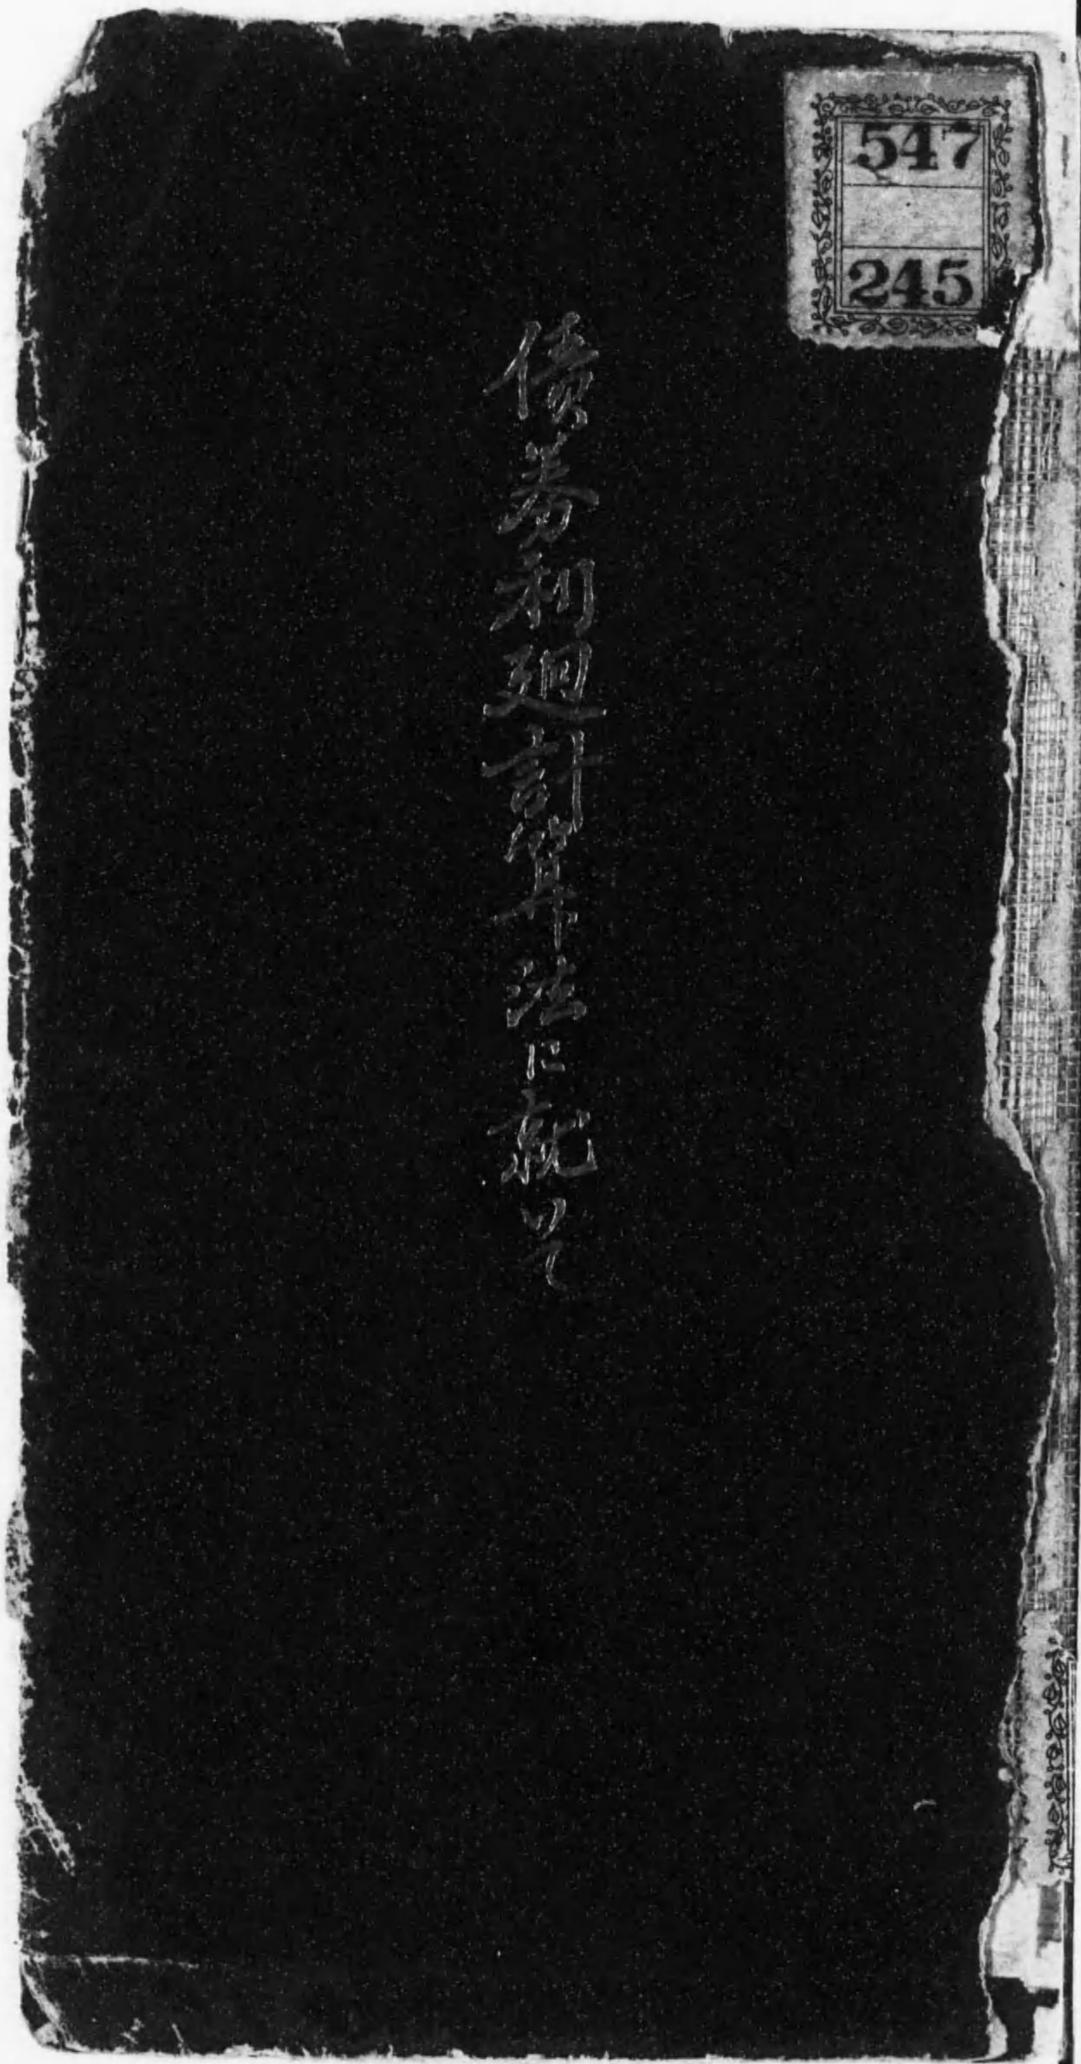 547
245
債券利廻計算法に就いて